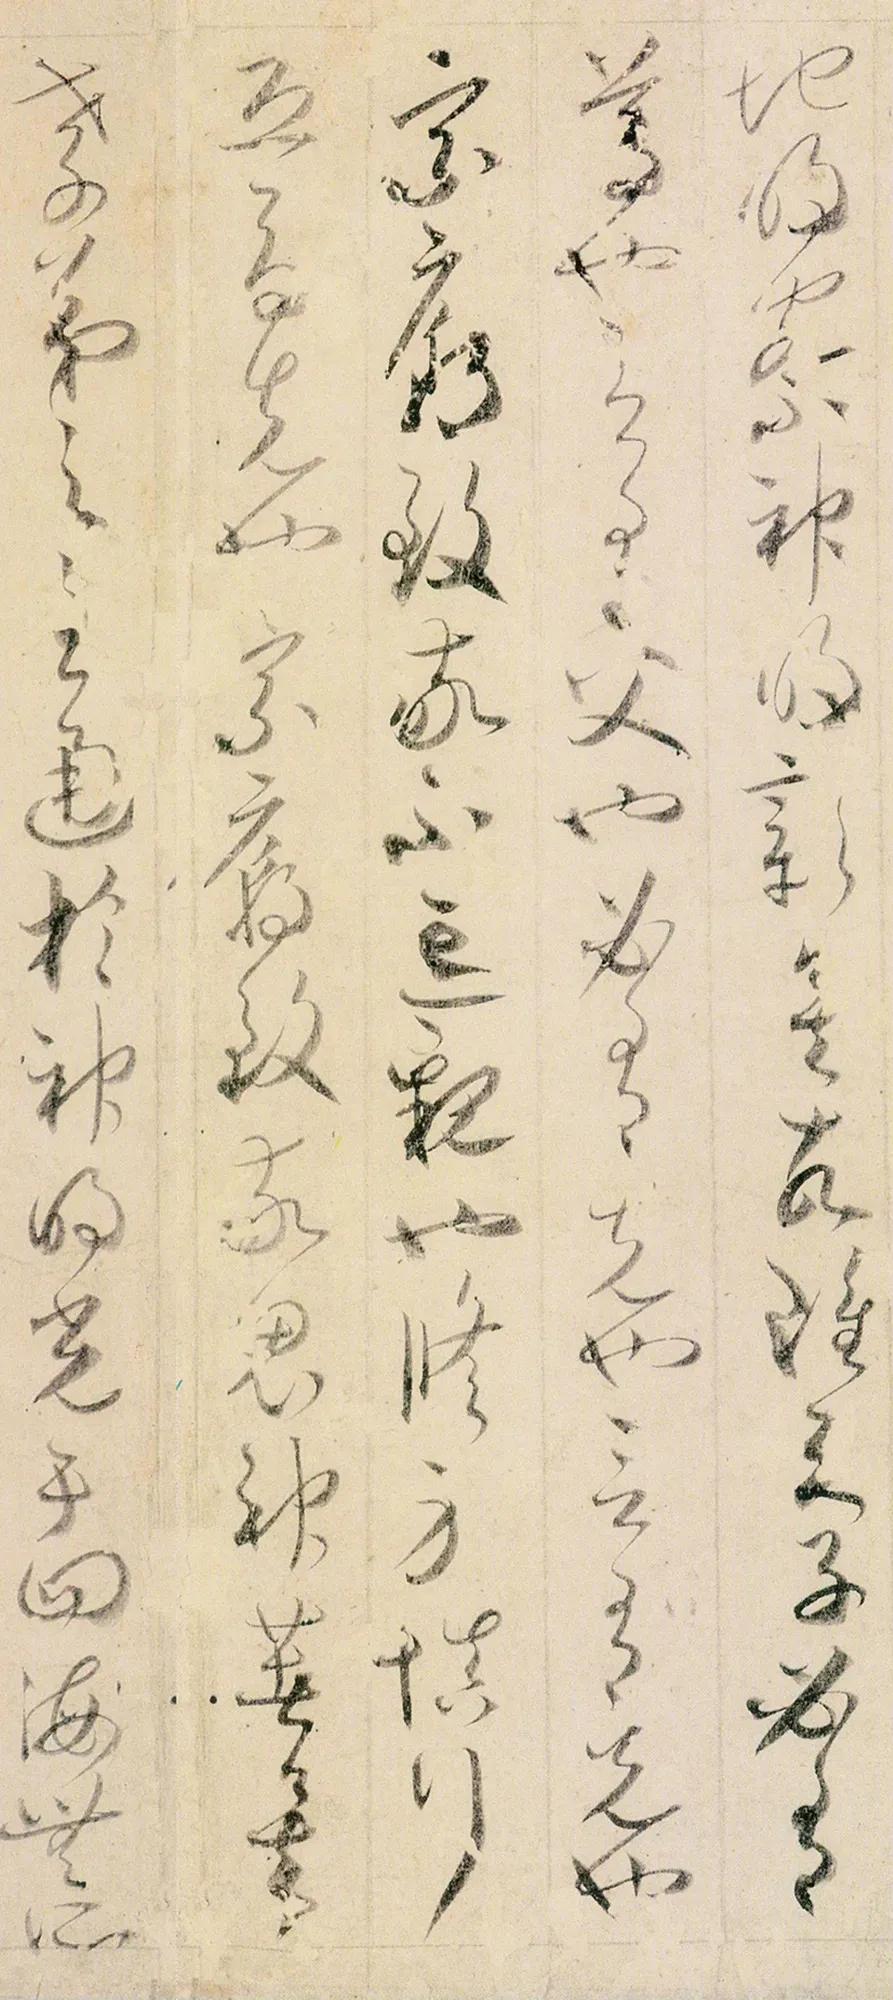 地明察神明彰矣故雖天子必有
尊也言有父也必有先也言有兄也
宗廟致敬不忘親也脩身慎行
恐辱先也宗廟致敬鬼神著矣
孝弟之至通於神明光于四海無所